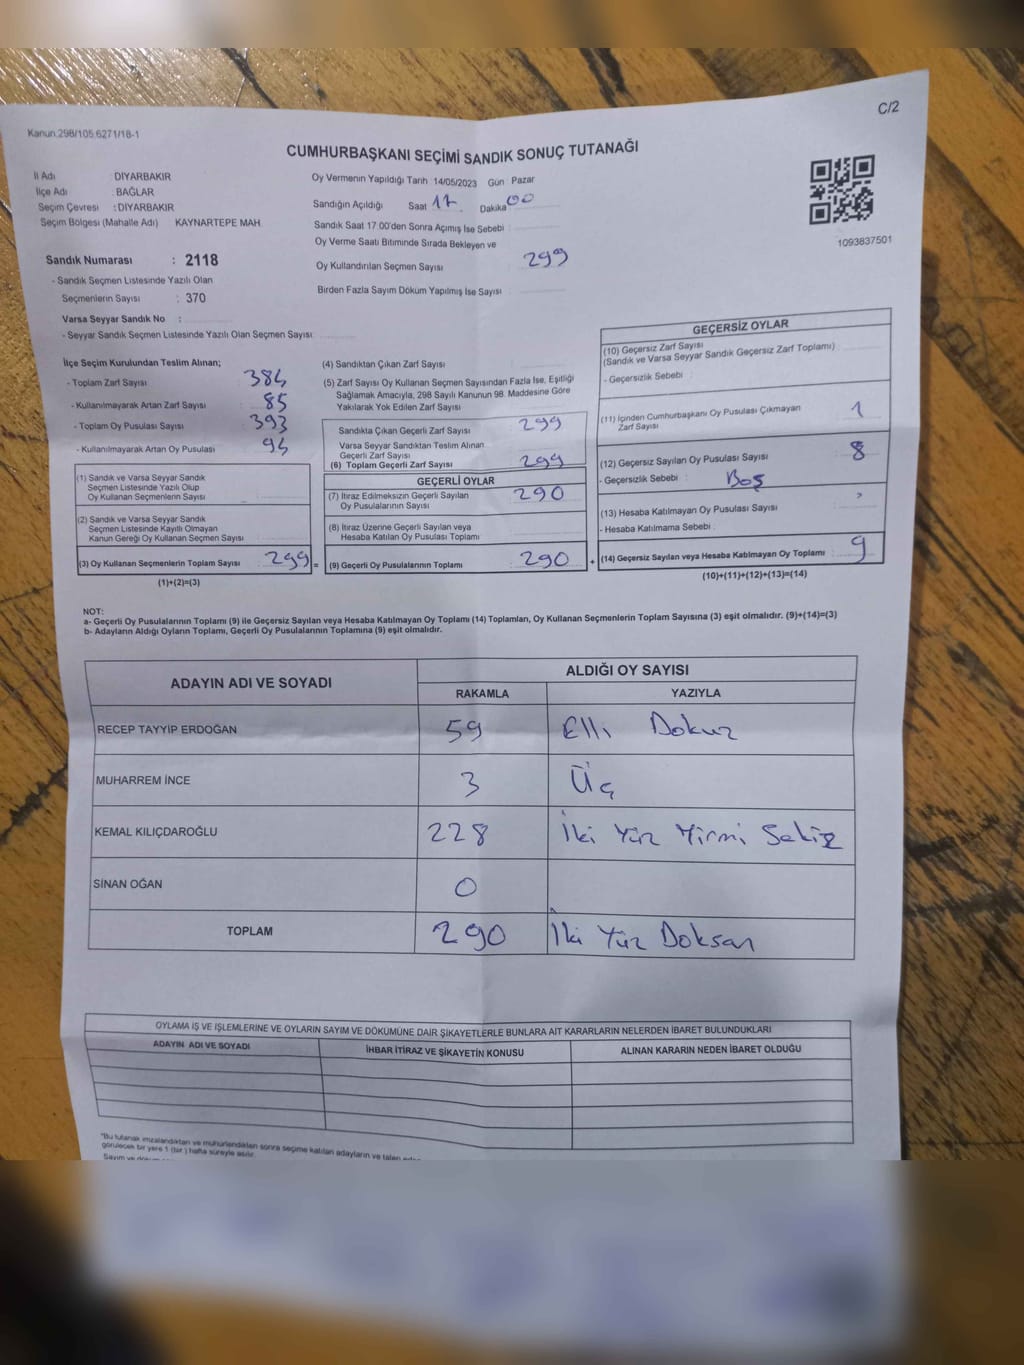 C/2
Kanun.298/105.6271/18-1
CUMHURBAŞKANI SEÇİMİ SANDIK SONUÇ TUTANAĞI
İl Adı DİYARBAKIR
İlçe Adı : BAĞLAR
Seçim Çevresi : DİYARBAKIR
Seçim Bölgesi (Mahalle Adı) KAYNARTEPE MAH.
Oy Vermenin Yapıldığı Tarih 14/05/2023 Gün : Pazar
Sandığın Açıldığı Saat 17 Dakika 00
Sandık Saat 17:00'den Sonra Açımış İse Sebebi :
Oy Verme Saati Bitiminde Sırada Bekleyen ve
Oy Kullandırılan Seçmen Sayısı 299
Birden Fazla Sayım Döküm Yapılmış İse Sayısı :
1093837501
Sandık Numarası : 2118
- Sandık Seçmen Listesinde Yazılı Olan
Seçmenlerin Sayısı : 370
Varsa Seyyar Sandık No :
- Seyyar Sandık Seçmen Listesinde Yazılı Olan Seçmen Sayısı:
İlçe Seçim Kurulundan Teslim Alınan;
- Toplam Zarf Sayısı 384
- Kullanılmayarak Artan Zarf Sayısı 85
- Toplam Oy Pusulası Sayısı 393
- Kullanılmayarak Artan Oy Pusulası 94
(1) Sandık ve Varsa Seyyar Sandık
Seçmen Listesinde Yazılı Olup
Oy Kullanan Seçmenlerin Sayısı :
(2) Sandık ve Varsa Seyyar Sandık
Seçmen Listesinde Kayıtlı Olmayan
Kanun Gereği Oy Kullanan Seçmen Sayısı :
(3) Oy Kullanan Seçmenlerin Toplam Sayısı 299 =
(1)+(2)=(3)
(4) Sandıktan Çıkan Zarf Sayısı
(5) Zarf Sayısı Oy Kullanan Seçmen Sayısından Fazla İse, Eşitliği
Sağlamak Amacıyla, 298 Sayılı Kanunun 98. Maddesine Göre
Yakılarak Yok Edilen Zarf Sayısı
Sandıkta Çıkan Geçerli Zarf Sayısı 299
Varsa Seyyar Sandıktan Teslim Alınan
Geçerli Zarf Sayısı
(6) Toplam Geçerli Zarf Sayısı 299
GEÇERLİ OYLAR
(7) İtiraz Edilmeksizin Geçerli Sayılan 290
Oy Pusulalarının Sayısı
(8) İtiraz Üzerine Geçerli Sayılan veya
Hesaba Katılan Oy Pusulası Toplamı
(9) Geçerli Oy Pusulalarının Toplamı 290 +
GEÇERSİZ OYLAR
(10) Geçersiz Zarf Sayısı
(Sandık ve Varsa Seyyar Sandık Geçersiz Zarf Toplamı) :
- Geçersizlik Sebebi :
(11) İçinden Cumhurbaşkanı Oy Pusulası Çıkmayan 1
Zarf Sayısı
(12) Geçersiz Sayılan Oy Pusulası Sayısı 8
- Geçersizlik Sebebi : Boş
(13) Hesaba Katılmayan Oy Pusulası Sayısı
- Hesaba Katılmama Sebebi :
(14) Geçersiz Sayılan veya Hesaba Katılmayan Oy Toplamı 9
(10)+(11)+(12)+(13)=(14)
NOT:
a- Geçerli Oy Pusulalarının Toplamı (9) ile Geçersiz Sayılan veya Hesaba Katılmayan Oy Toplamı (14) Toplamları, Oy Kullanan Seçmenlerin Toplam Sayısına (3) eşit olmalıdır. (9)+(14)=(3)
b- Adayların Aldığı Oyların Toplamı, Geçerli Oy Pusulalarının Toplamına (9) eşit olmalıdır.
ADAYIN ADI VE SOYADI
ALDIĞI OY SAYISI
RAKAMLA YAZIYLA
RECEP TAYYİP ERDOĞAN 59 Elli Dokuz
MUHARREM İNCE 3 Üç
KEMAL KILIÇDAROĞLU 228 İki Yüz Yirmi Sekiz
SİNAN OĞAN 0
TOPLAM 290 İki Yüz Doksan
OYLAMA İŞ VE İŞLEMLERİNE VE OYLARIN SAYIM VE DÖKÜMÜNE DAİR ŞİKAYETLERLE BUNLARA AİT KARARLARIN NELERDEN İBARET BULUNDUKLARI
ADAYIN ADI VE SOYADI İHBAR İTİRAZ VE ŞİKAYETİN KONUSU ALINAN KARARIN NEDEN İBARET OLDUĞU
"Bu tutanak imzalandıktan ve mühürlendikten sonra seçime katılan adayların ve talep
görülecek bir yere 1 (bir) hafta süreyle asılır.
Sayım ve